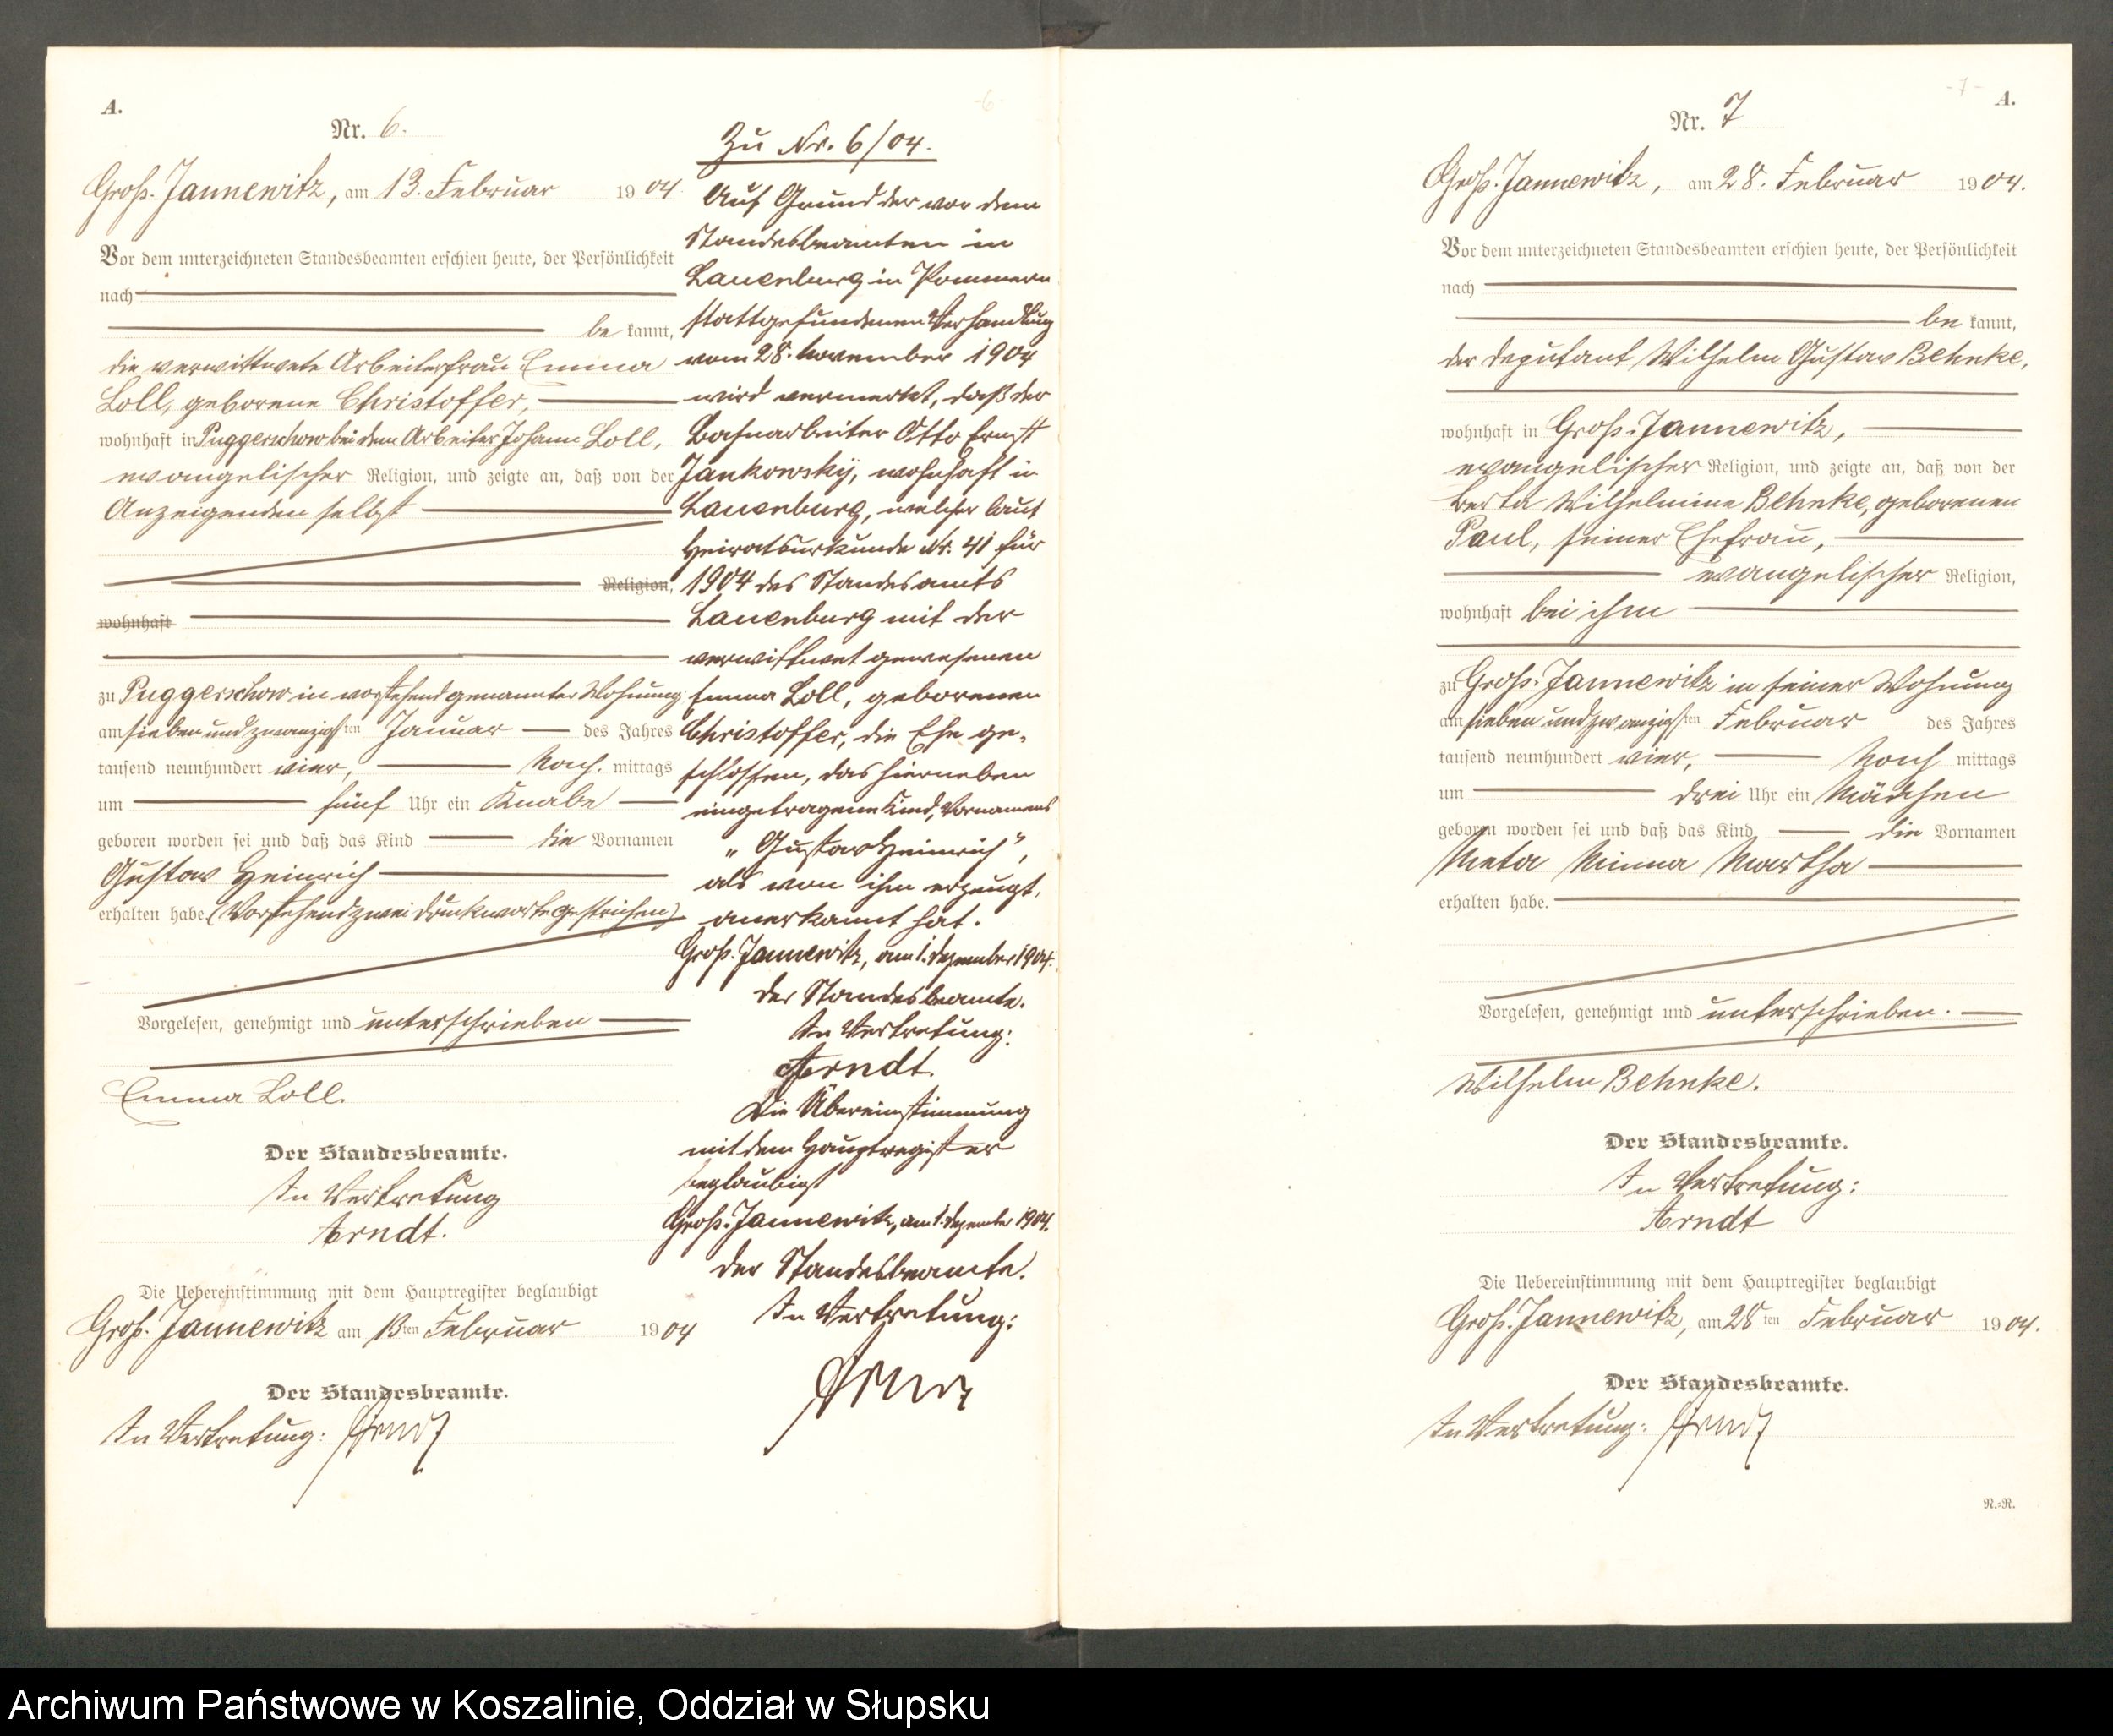 A.
Nr. 6.
Groß. Jannewitz, am 13. Februar 1904.
Vor dem unterzeichneten Standesbeamten erschien heute, der Persönlichkeit
nach
be kannt,
die verwittwete Arbeiterfrau Emma
Loll, geborene Christoffer,
wohnhaft in Puggerschow bei dem Arbeiter Johann Loll,
evangelischer Religion, und zeigte an, daß von der
Anzeigenden selbst
Religion,
wohnhaft
zu Puggerschow in vorstehend genannter Wohnung
am sieben und zwanzigsten Januar des Jahres
tausend neunhundert vier, Nach. mittags
um fünf Uhr ein Knabe
geboren worden sei und daß das Kind die Vornamen
Gustav Heinrich
erhalten habe. (Vorstehend zwei Druckworte gestrichen)
Vorgelesen, genehmigt und unterschrieben
Emma Loll.
Der Standesbeamte.
In Vertretung
Arndt.
Die Uebereinstimmung mit dem Hauptregister beglaubigt
Groß. Jannewitz am 13ten Februar 1904
Der Standesbeamte.
In Vertretung: Arndt
-6-
Zu Nr. 6/04.
Auf Grund der vor dem
Standesbeamten in
Lauenburg in Pommern
stattgefundenen Verhandlung
vom 28. November 1904
wird vermerkt, daß der
Bahnarbeiter Otto Ernst
Jankowsky, wohnhaft in
Lauenburg, welcher laut
Heiratsurkunde Nr. 41 für
1904 des Standesamts
Lauenburg mit der
verwittwet gewesenen
Emma Loll, geborenen
Christoffer, die Ehe ge-
schlossen, das hierneben
eingetragene Kind, Vornamens
„Gustav Heinrich",
als von ihm erzeugt,
anerkannt hat.
Groß. Jannewitz, am 1. Dezember 1904.
Der Standesbeamte.
In Vertretung:
Arndt.
Die Übereinstimmung
mit dem Hauptregister
beglaubigt
Groß. Jannewitz, am 1. Dezember 1904.
Der Standesbeamte.
In Vertretung:
Arndt
-7-
A.
Nr. 7
Groß. Jannewitz, am 28. Februar 1904.
Vor dem unterzeichneten Standesbeamten erschien heute, der Persönlichkeit
nach
be kannt,
der Deputant Wilhelm Gustav Behnke,
wohnhaft in Groß. Jannewitz,
evangelischer Religion, und zeigte an, daß von der
Berta Wilhelmine Behnke, geborenen
Paul, seiner Ehefrau,
evangelischer Religion,
wohnhaft bei ihm
zu Groß. Jannewitz in seiner Wohnung
am sieben und zwanzigsten Februar des Jahres
tausend neunhundert vier, Nach mittags
um drei Uhr ein Mädchen
geboren worden sei und daß das Kind die Vornamen
Meta Minna Martha
erhalten habe.
Vorgelesen, genehmigt und unterschrieben.
Wilhelm Behnke.
Der Standesbeamte.
In Vertretung:
Arndt
Die Uebereinstimmung mit dem Hauptregister beglaubigt
Groß. Jannewitz, am 28ten Februar 1904.
Der Standesbeamte.
In Vertretung: Arndt
R.=R.
Archiwum Państwowe w Koszalinie, Oddział w Słupsku